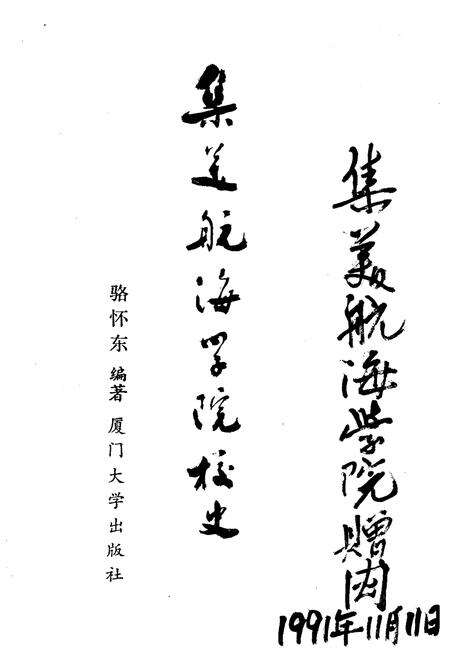 集美航海学院赠
1991年11月11日
集美航海学院校史
骆怀东 编著 厦门大学出版社